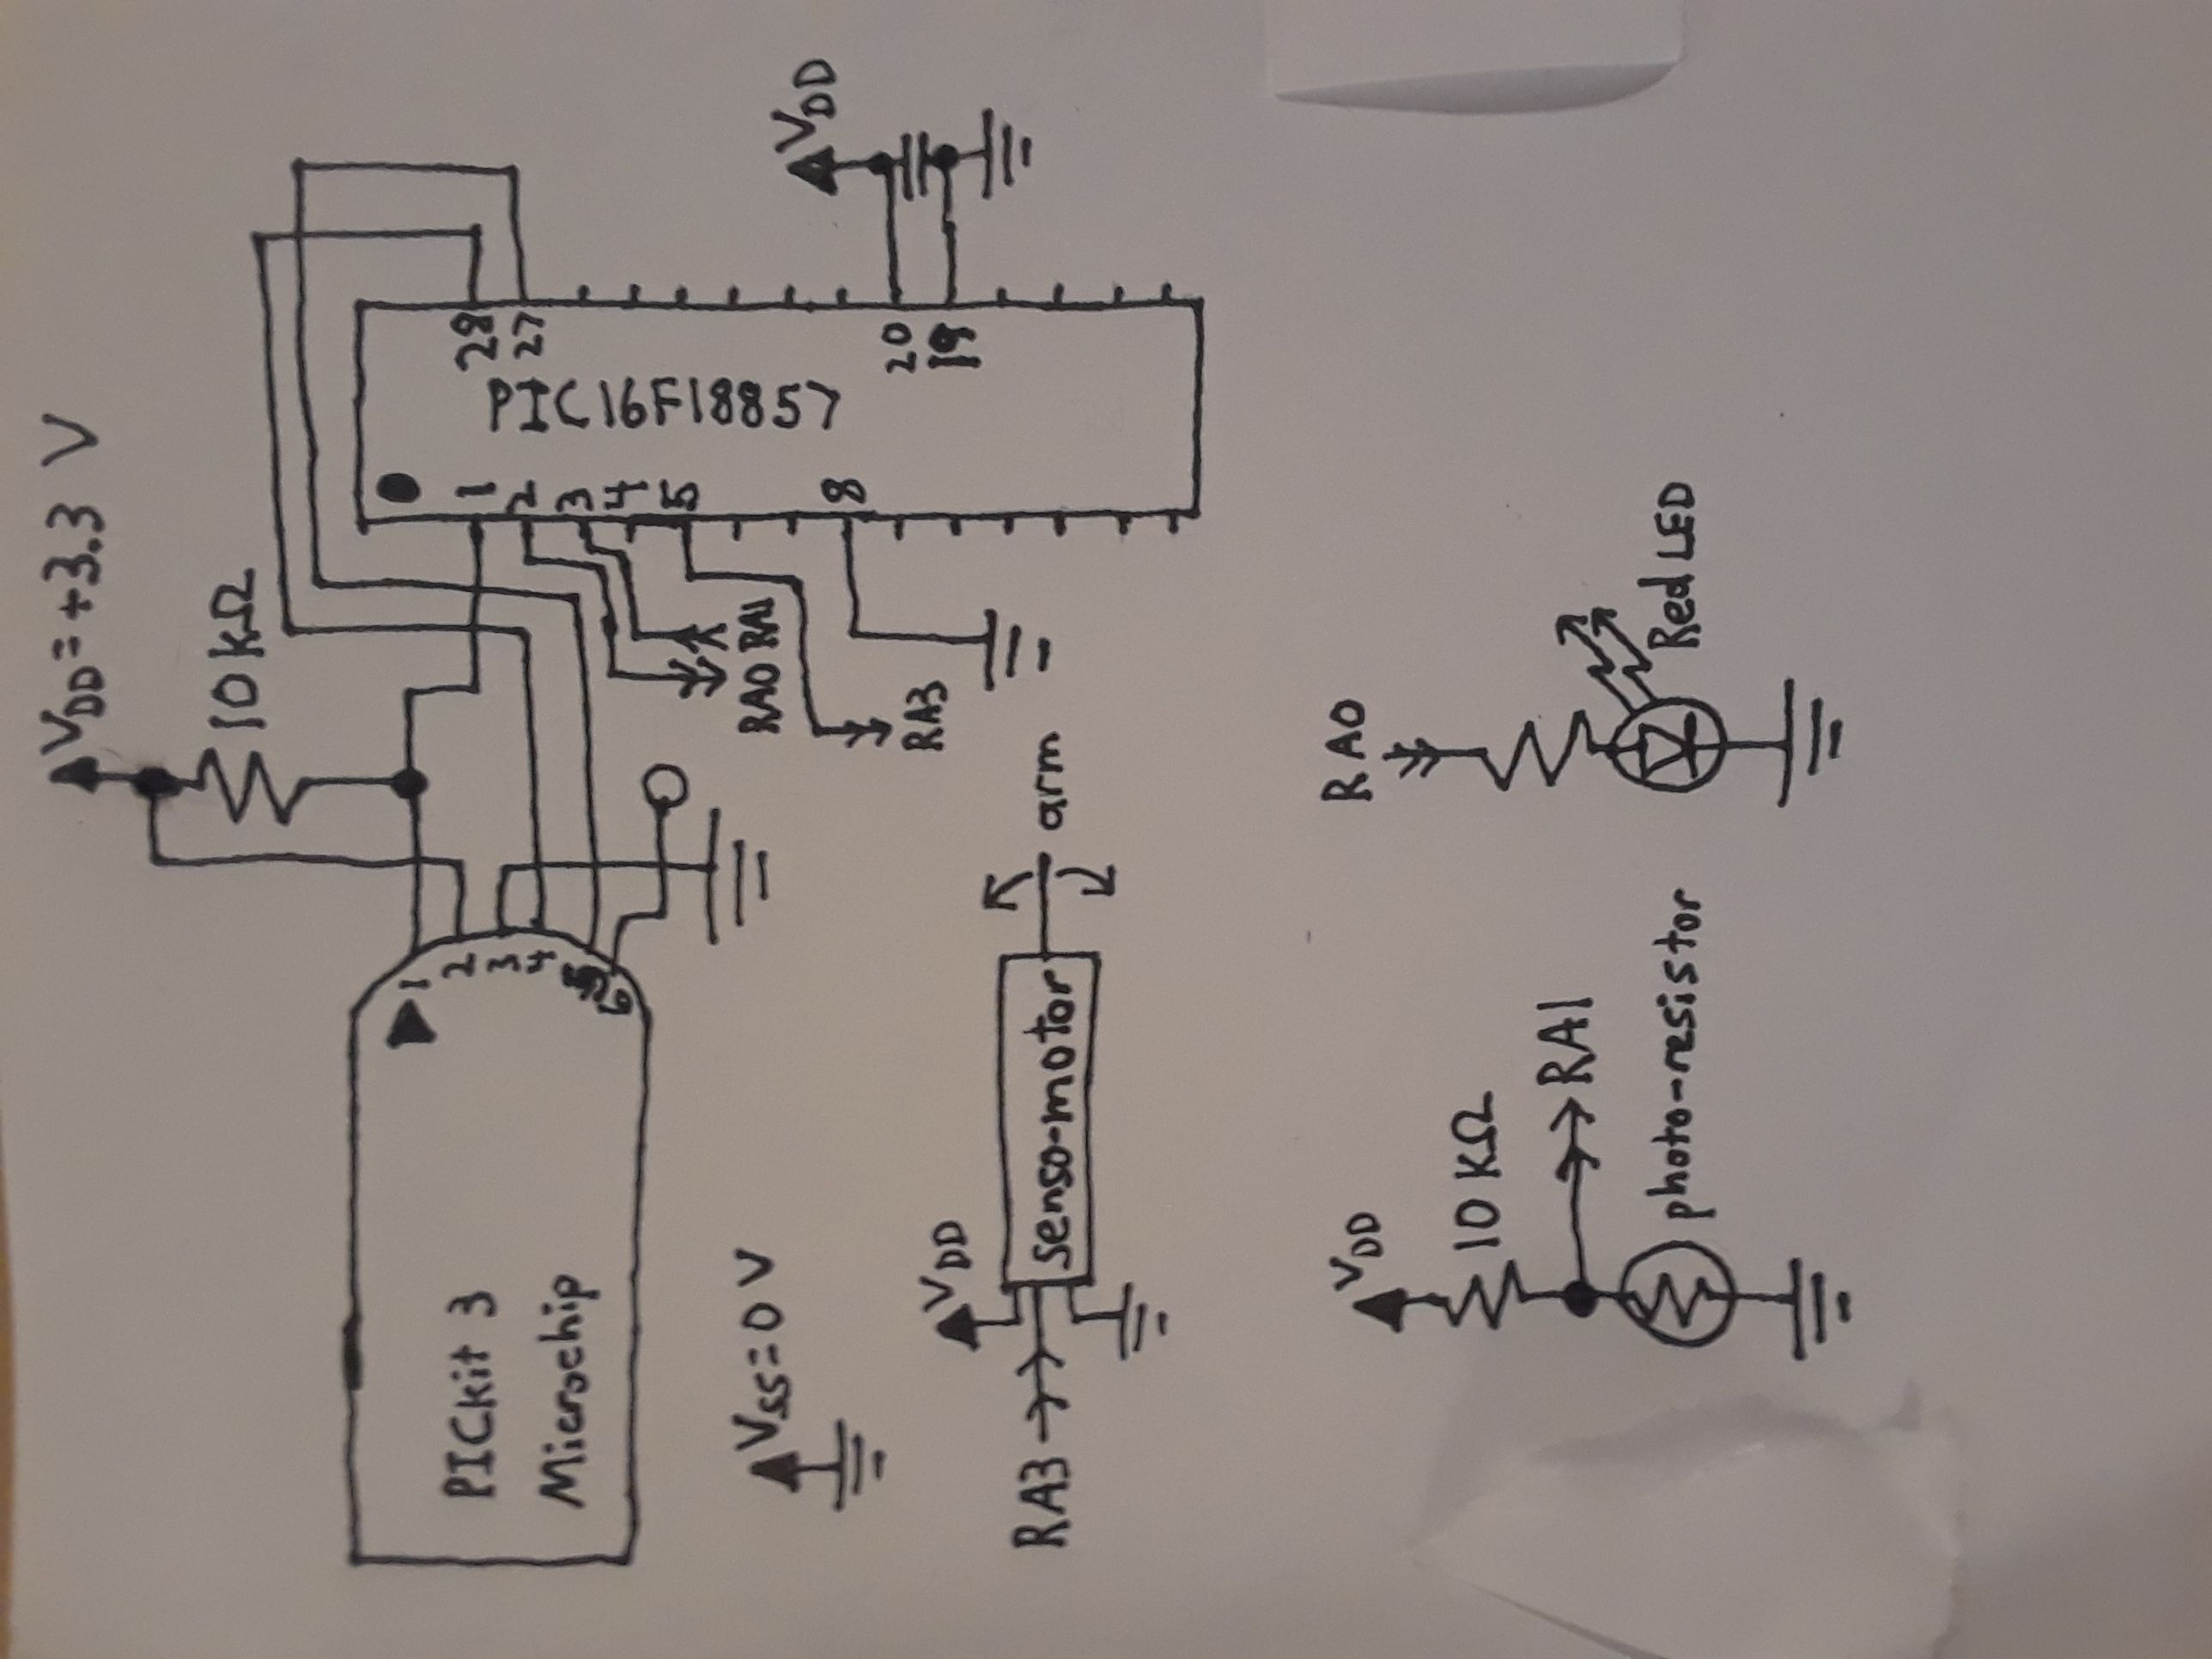 VDD = +3.3 V
10 kΩ
PICkit 3
Microchip
1
2
3
4
5
6
1
2
3
4
5
8
28
27
20
19
PIC16F18857
RA0 RA1
RA3
VSS = 0 V
VDD
VDD
RA3
senso-motor
arm
VDD
10 KΩ
RA1
photo-resistor
RA0
Red LED